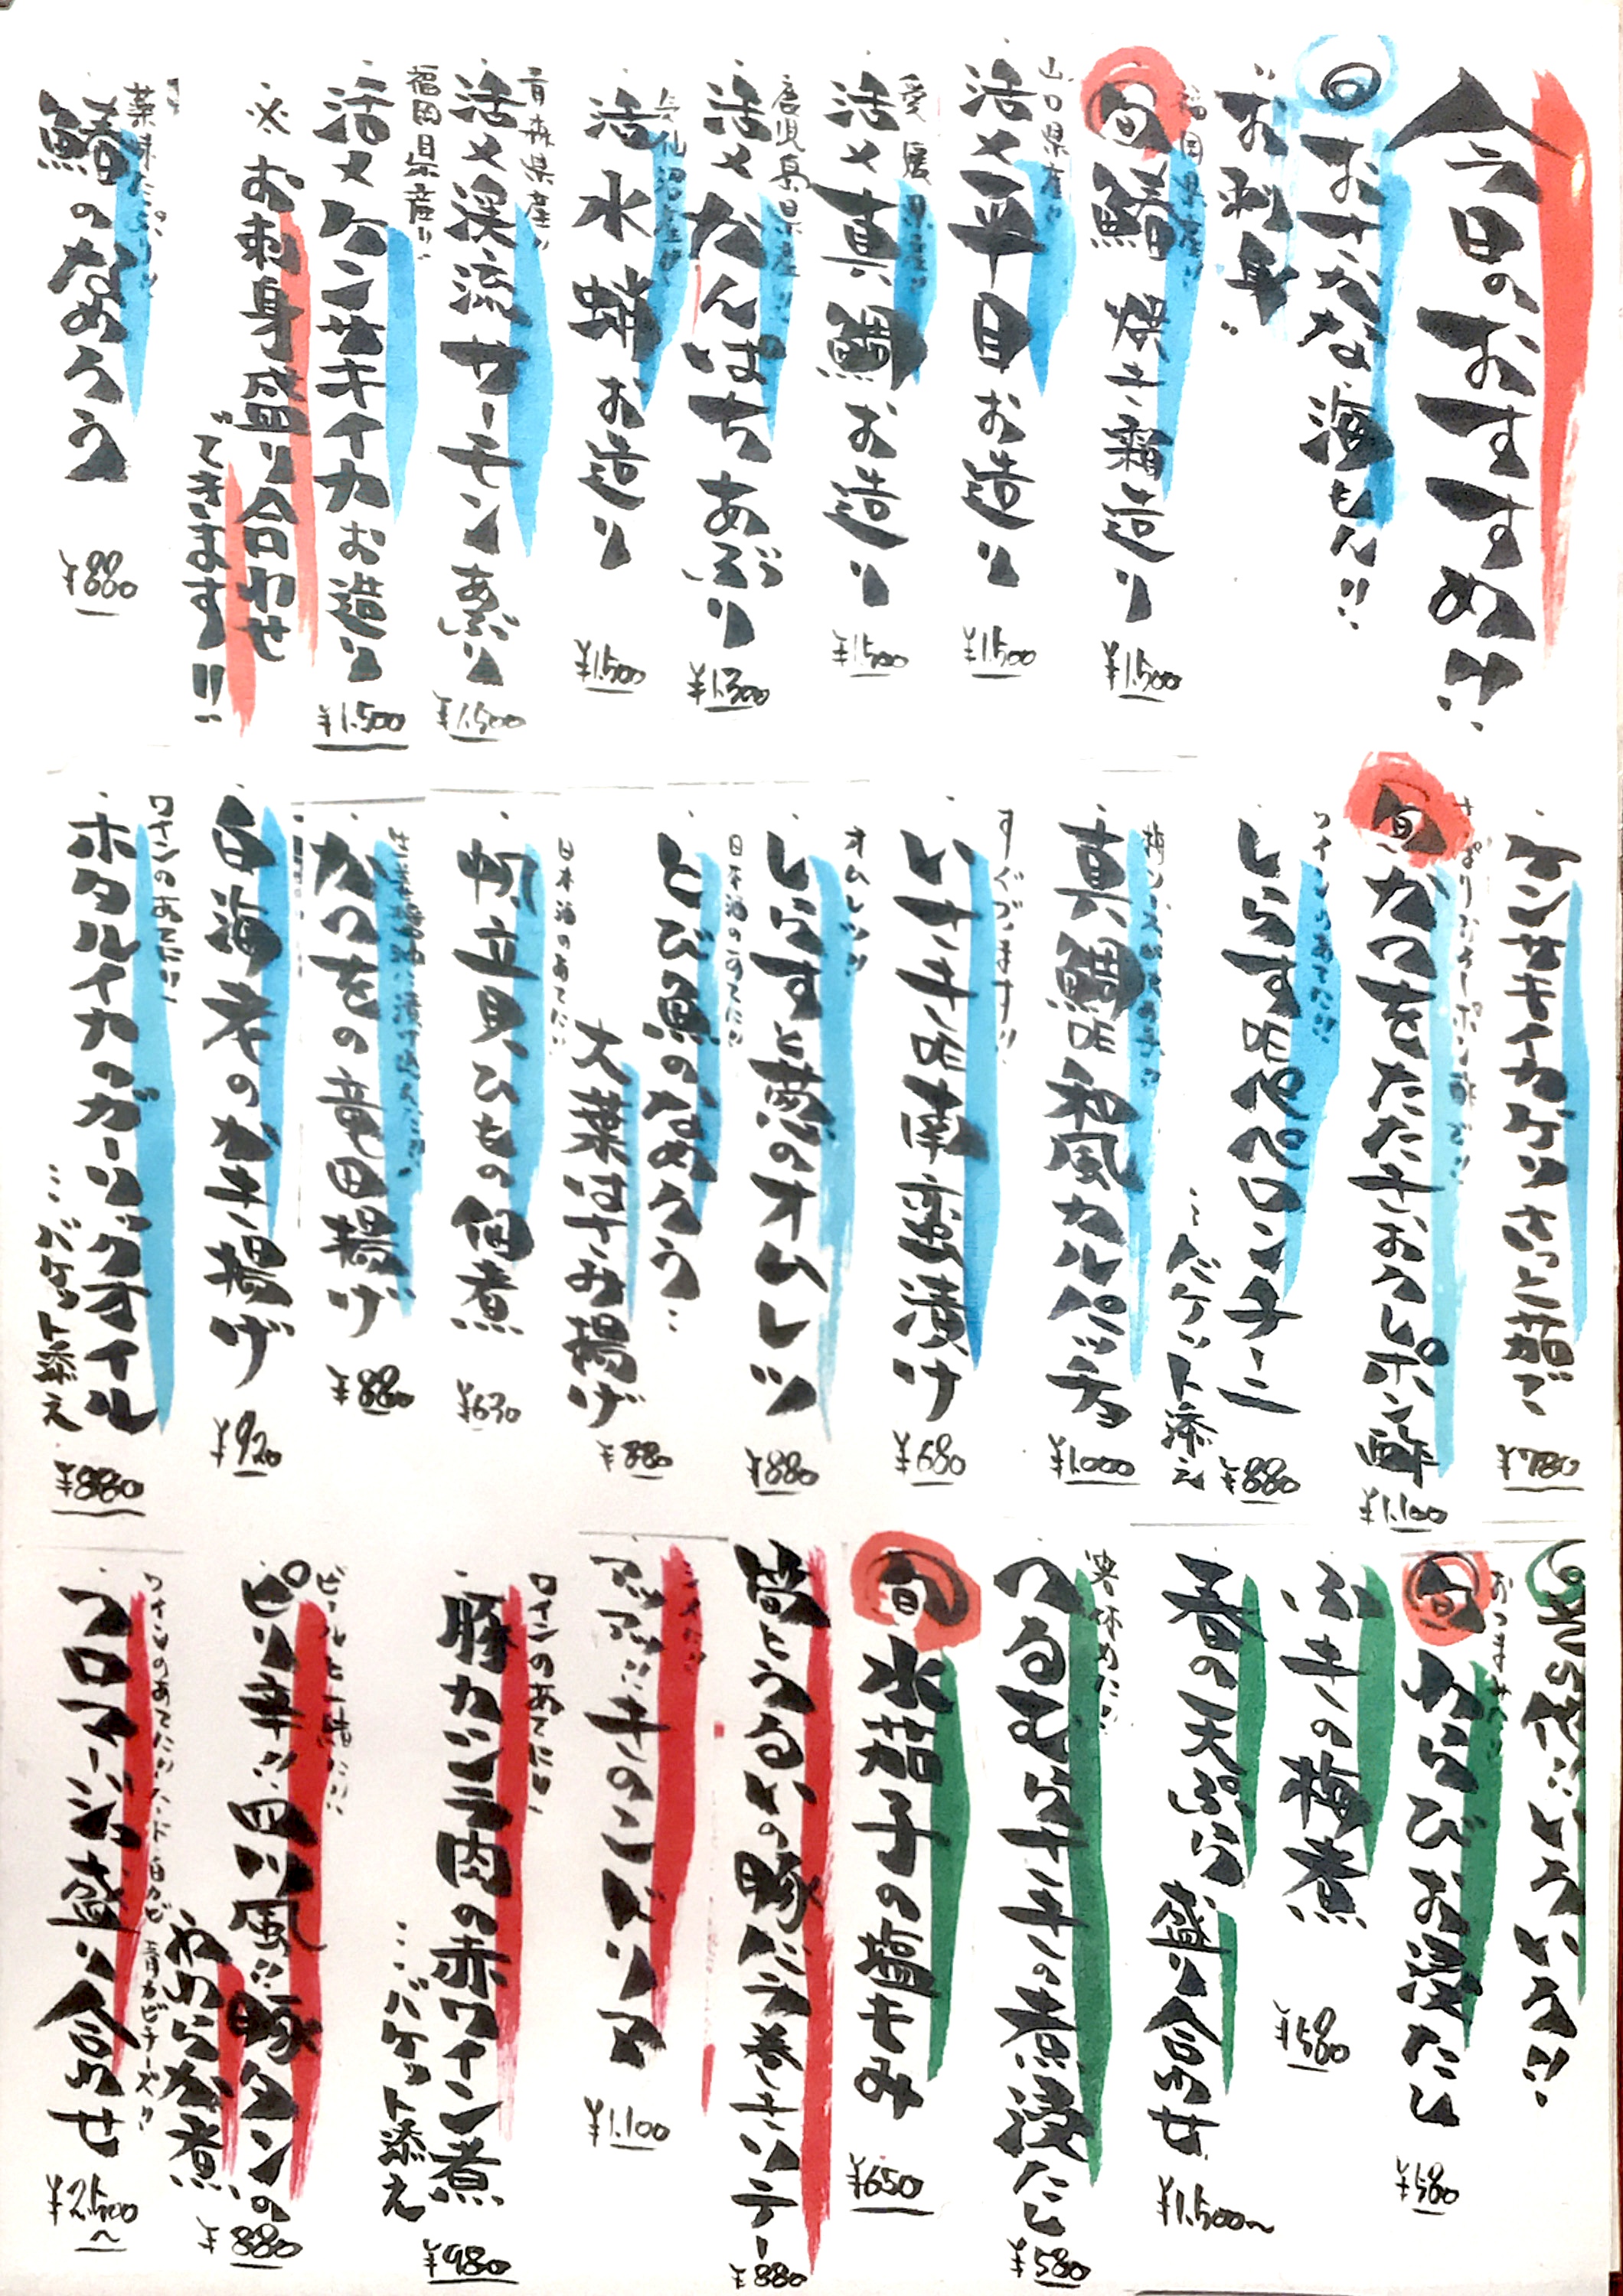 今日のおすすめ!!
◎おさかな海もん!!
お刺身
福岡県産!!
旬 鰆 焼き霜造り ¥1,500
山口県産!!
活〆平目お造り ¥1,500
愛媛県産!!
活〆真鯛お造り ¥1,500
鹿児島県産!!
活〆かんぱちあぶり ¥1,300
気仙沼産!!
活水蛸お造り ¥1,500
青森県産!!
活〆渓流サーモンあぶり ¥1,500
福岡県産!!
活〆ケンサキイカお造り ¥1,500
※お刺身盛り合わせ
できます!!
薬味たっぷり!!
鰆のなめろう ¥880
ケンサキイカゲソさっと茹で ¥780
さっぱりおろしポン酢で!!
旬 かつをたたきおろしポン酢 ¥1,100
ワインのあてに!!
しらす咋ペペロンチーニ ¥880
…バケット添え
真鯛咋和風カルパッチョ ¥1,000
すぐでます!!
いさき咋南蛮漬け ¥680
オムレツ!!
しらすと葱のオムレツ ¥880
日本酒のあてに!!
とび魚のなめろう…
大葉はさみ揚げ ¥880
日本酒のあてに!!
帆立貝ひもの佃煮 ¥630
かつをの竜田揚げ ¥880
白海老のかき揚げ ¥920
ワインのあてに!!
ホタルイカのガーリックオイル ¥880
…バケット添え
いろいろ!!
おつまみに!!
旬 わらびお浸たし ¥580
ふきの梅煮 ¥580
春の天ぷら盛り合わせ ¥1,500~
箸休めに!!
つるむらさきの煮浸たし ¥580
旬 水茄子の塩もみ ¥650
筍とうるいの豚バラ巻きソテー ¥880
アッツアツ!!きのこドリア ¥1,100
ワインのあてに!!
豚カシラ肉の赤ワイン煮 ¥980
…バケット添え
ビールと一緒に!!
ピリ辛!!四川風!!豚タンの
やわらか煮 ¥880
ワインのあてに!!ハード 白カビ 青カビチーズ!!
フロマージュ盛り合わせ ¥2,500~